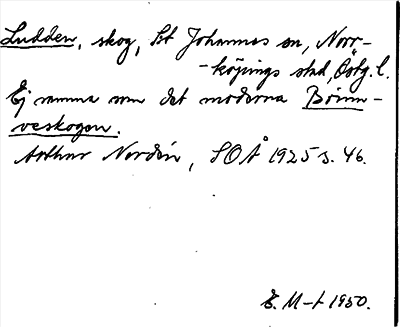 Ludden, skog, St Johannes sn, Norr-
-köpings stad, Östg. l.
Ej samma som det moderna
veskogen.
Arthur Nordén, SOÅ 1925 s. 46.
E. M-t 1950.